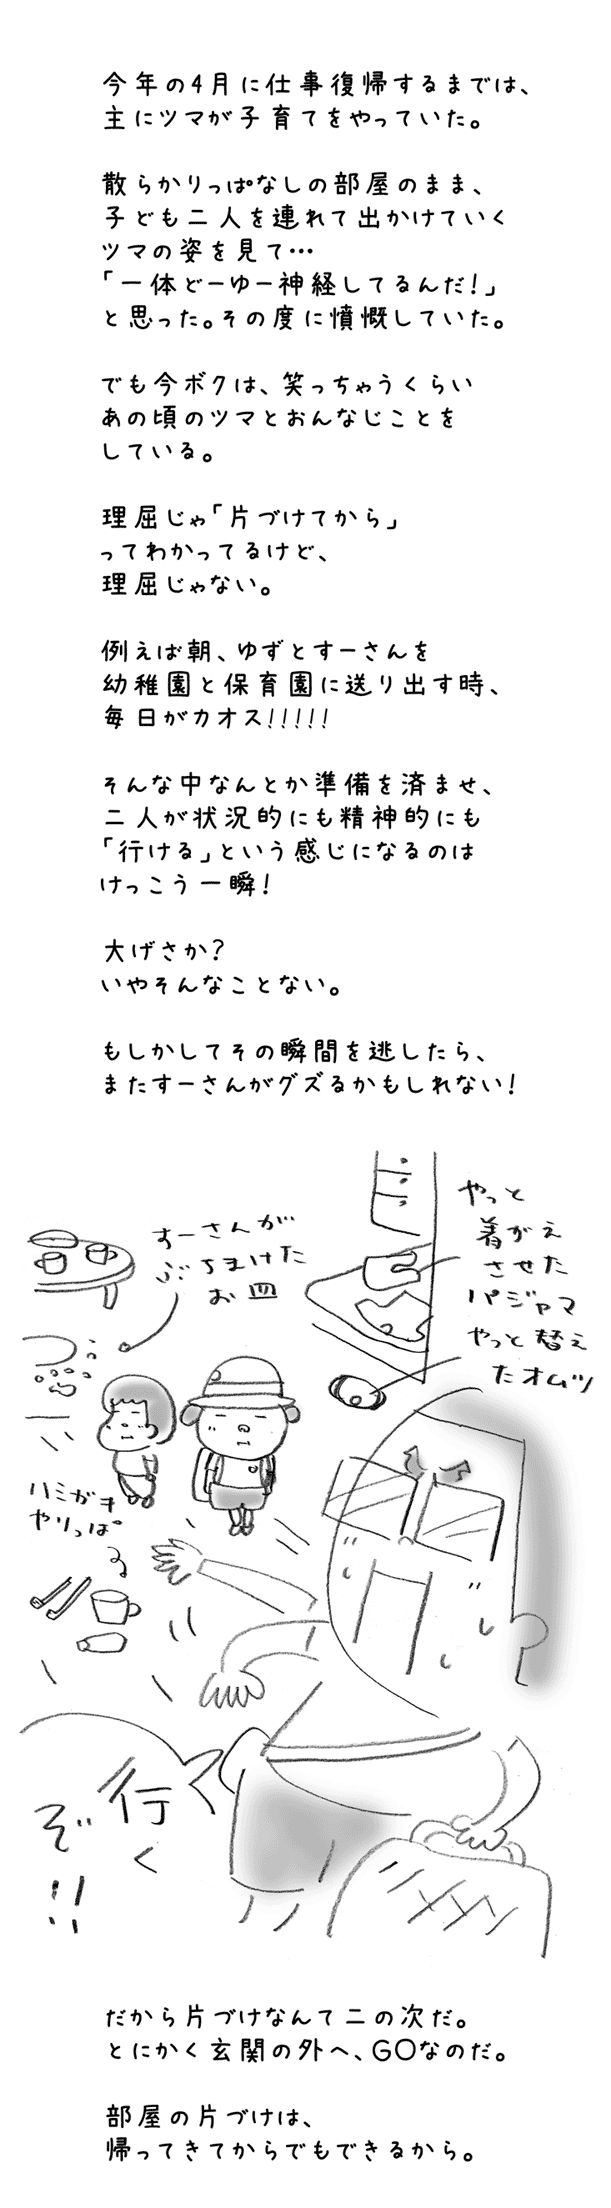 今年の4月に仕事復帰するまでは、
主にツマが子育てをやっていた。
散らかりっぱなしの部屋のまま、
子ども二人を連れて出かけていく
ツマの姿を見て…
「一体どーゆー神経してるんだ!」
と思った。その度に憤慨していた。
でも今ボクは、笑っちゃうくらい
あの頃のツマとおんなじことを
している。
理屈じゃ「片づけてから」
ってわかってるけど、
理屈じゃない。
例えば朝、ゆずとすーさんを
幼稚園と保育園に送り出す時、
毎日がカオス!!!!!
そんな中なんとか準備を済ませ、
二人が状況的にも精神的にも
「行ける」という感じになるのは
けっこう一瞬!
大げさか?
いやそんなことない。
もしかしてその瞬間を逃したら、
またすーさんがグズるかもしれない!
すーさんが
ぶちまけた
お皿
やっと
着がえ
させた
パジャマ
やっと替え
たオムツ
ハミガキ
やりっぱ
行く
ぞ!!
だから片づけなんて二の次だ。
とにかく玄関の外へ、GOなのだ。
部屋の片づけは、
帰ってきてからでもできるから。